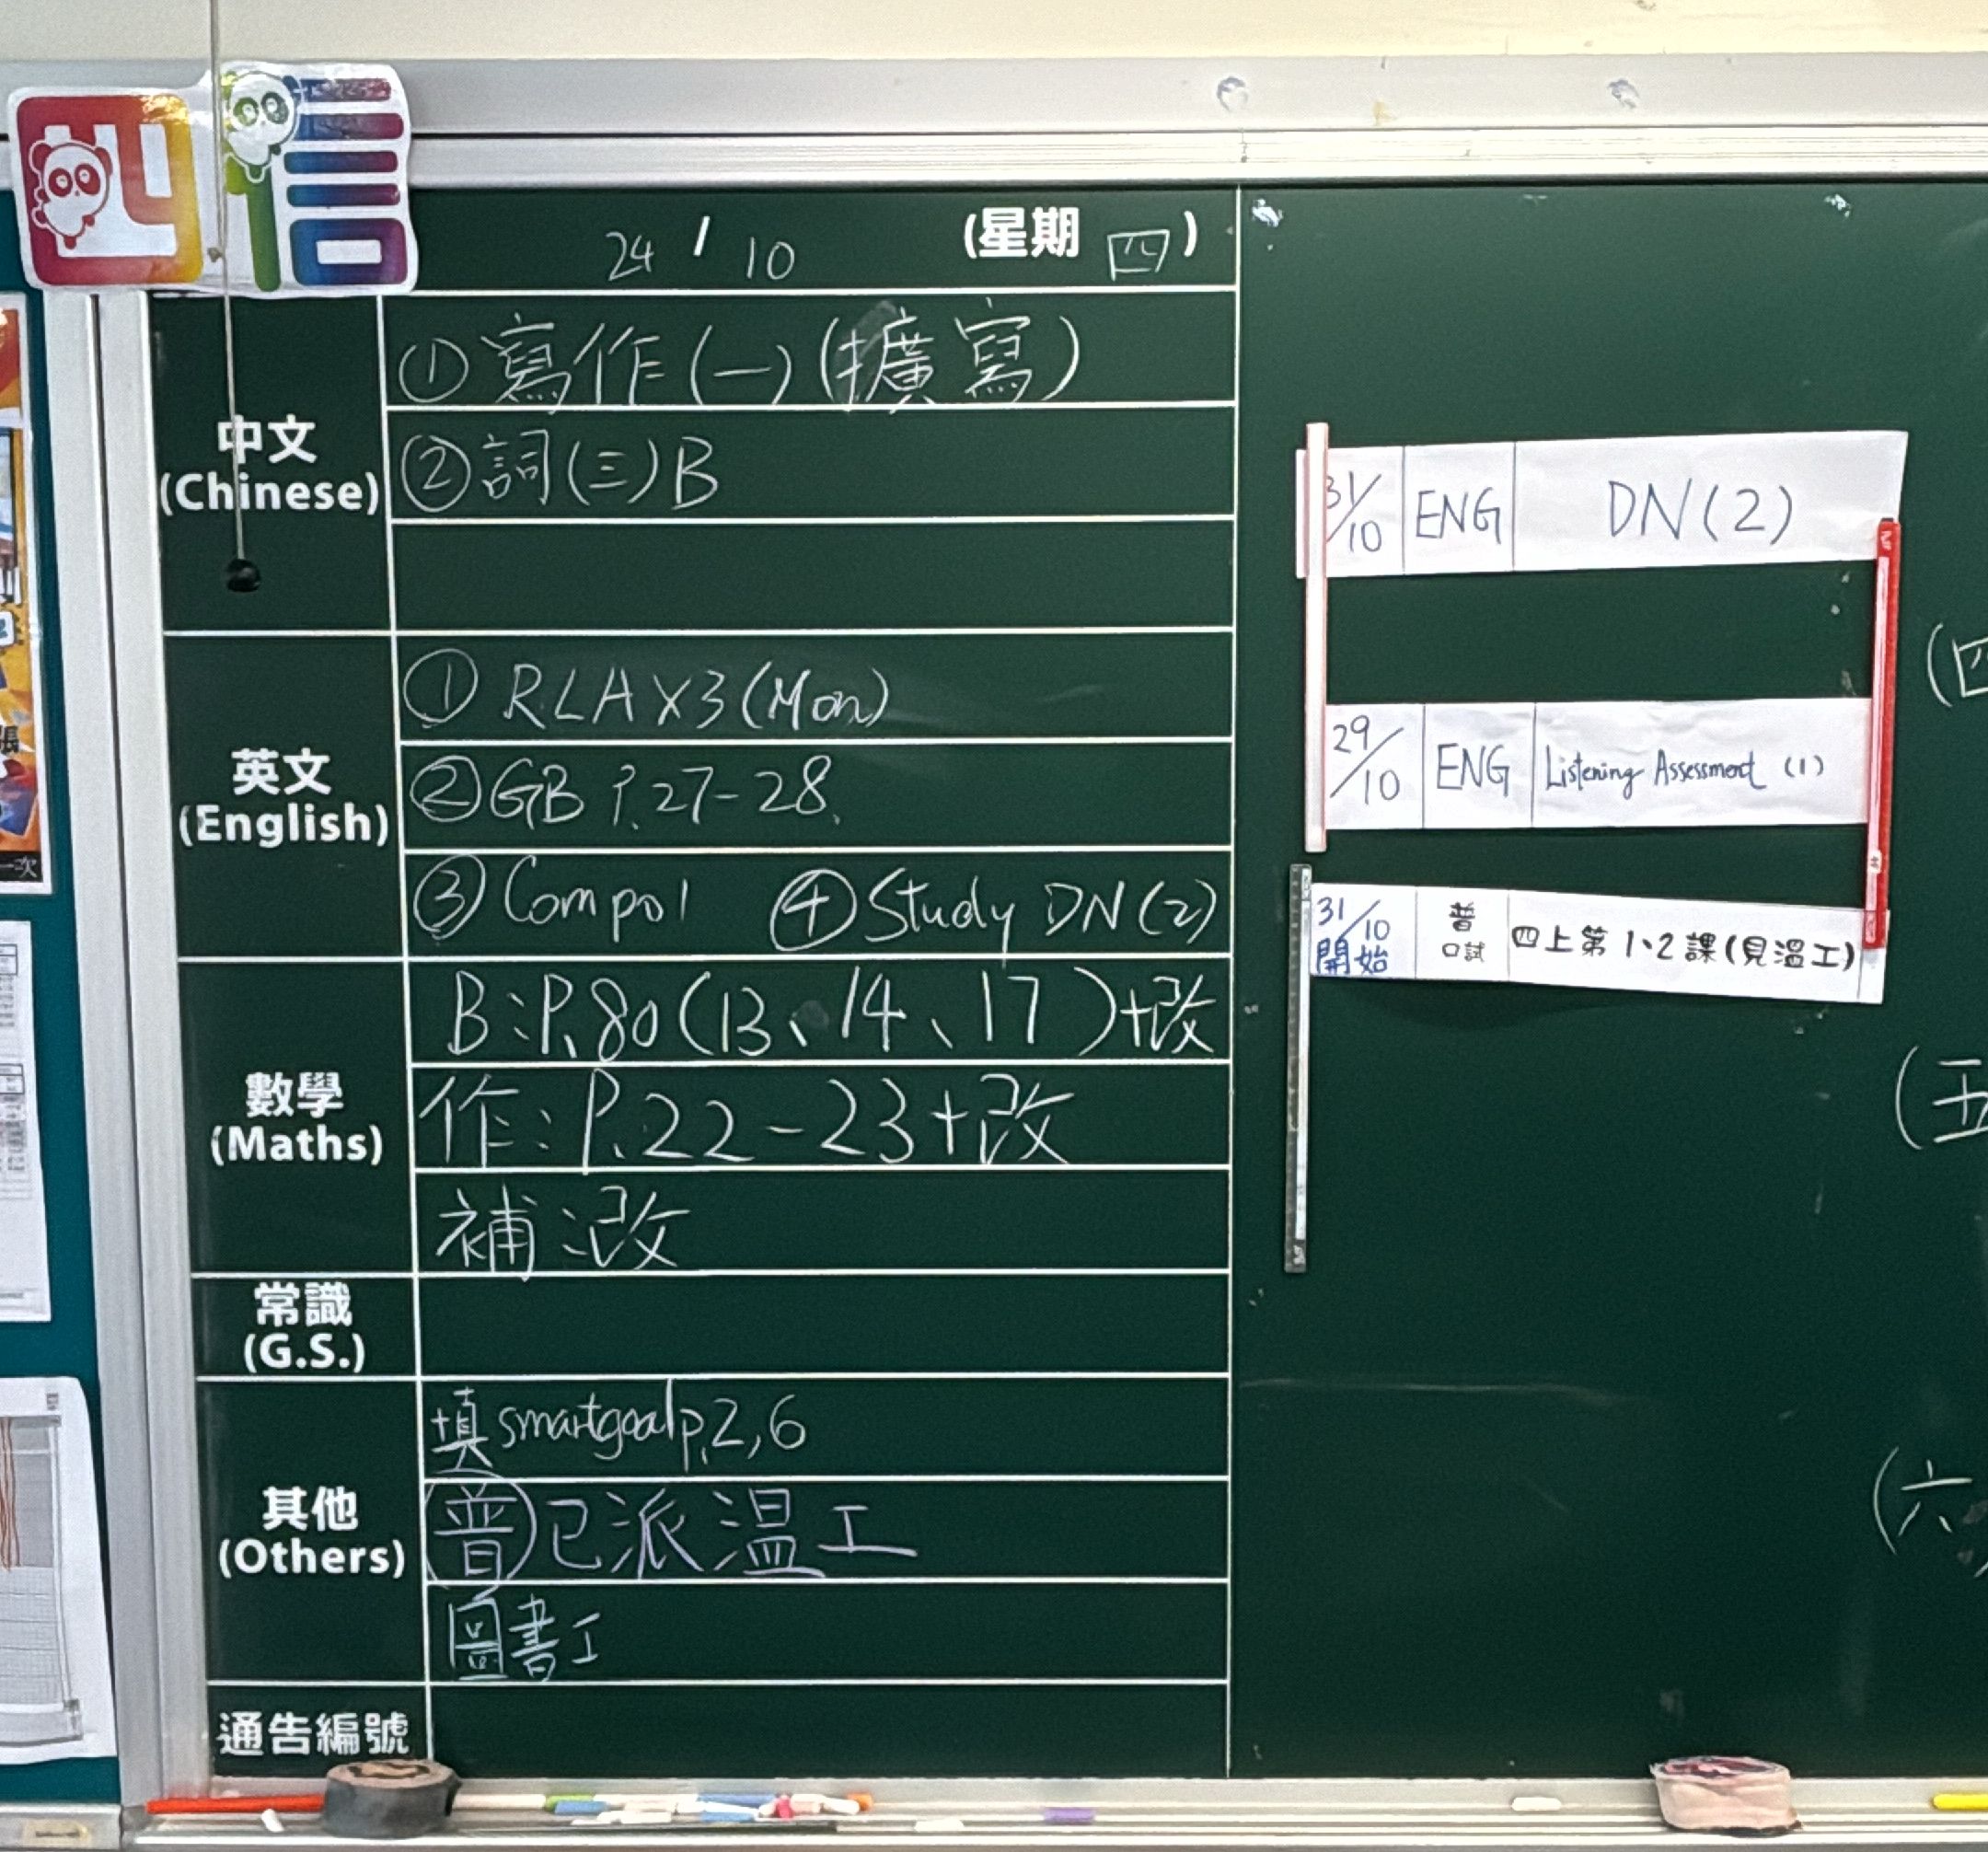 四信
24 / 10 (星期 四)
中文
(Chinese)
① 寫作(一)(擴寫)
② 詞(三)B
英文
(English)
① RLA X3 (Mon)
② GB P.27-28.
③ Compo1 ④ Study DN(2)
數學
(Maths)
B:P.80(13、14、17)+改
作:P.22-23+改
補:改
常識
(G.S.)
其他
(Others)
填 smartgoal p.2,6
普 已派溫工
圖書工
通告編號
31/10 ENG DN(2)
29/10 ENG Listening Assessment (1)
31/10 開始 普 口試 四上第1、2課(見溫工)
(四
(五
(六
一次